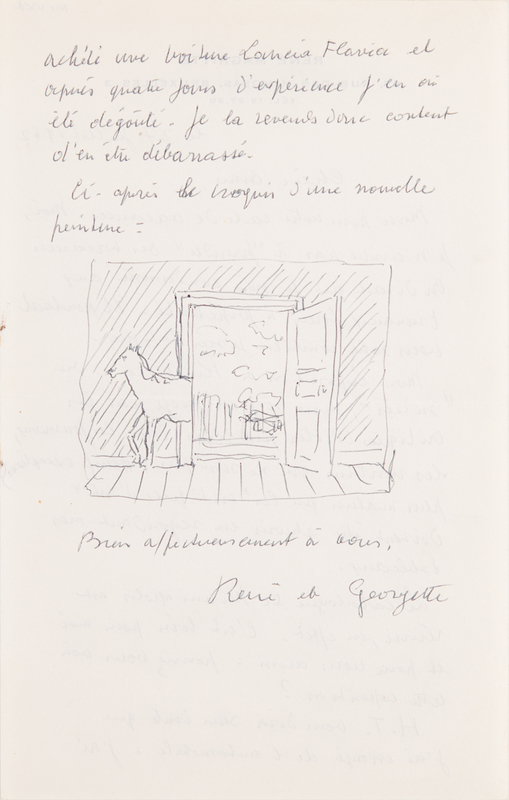 acheté une voiture Lancia Flavia et
après quatre jours d'expérience j'en ai
été dégoûté. Je la revends donc content
d'en être débarrassé.
Ci-après le croquis d'une nouvelle
peinture =
Bien affectueusement à vous,
René et Georgette